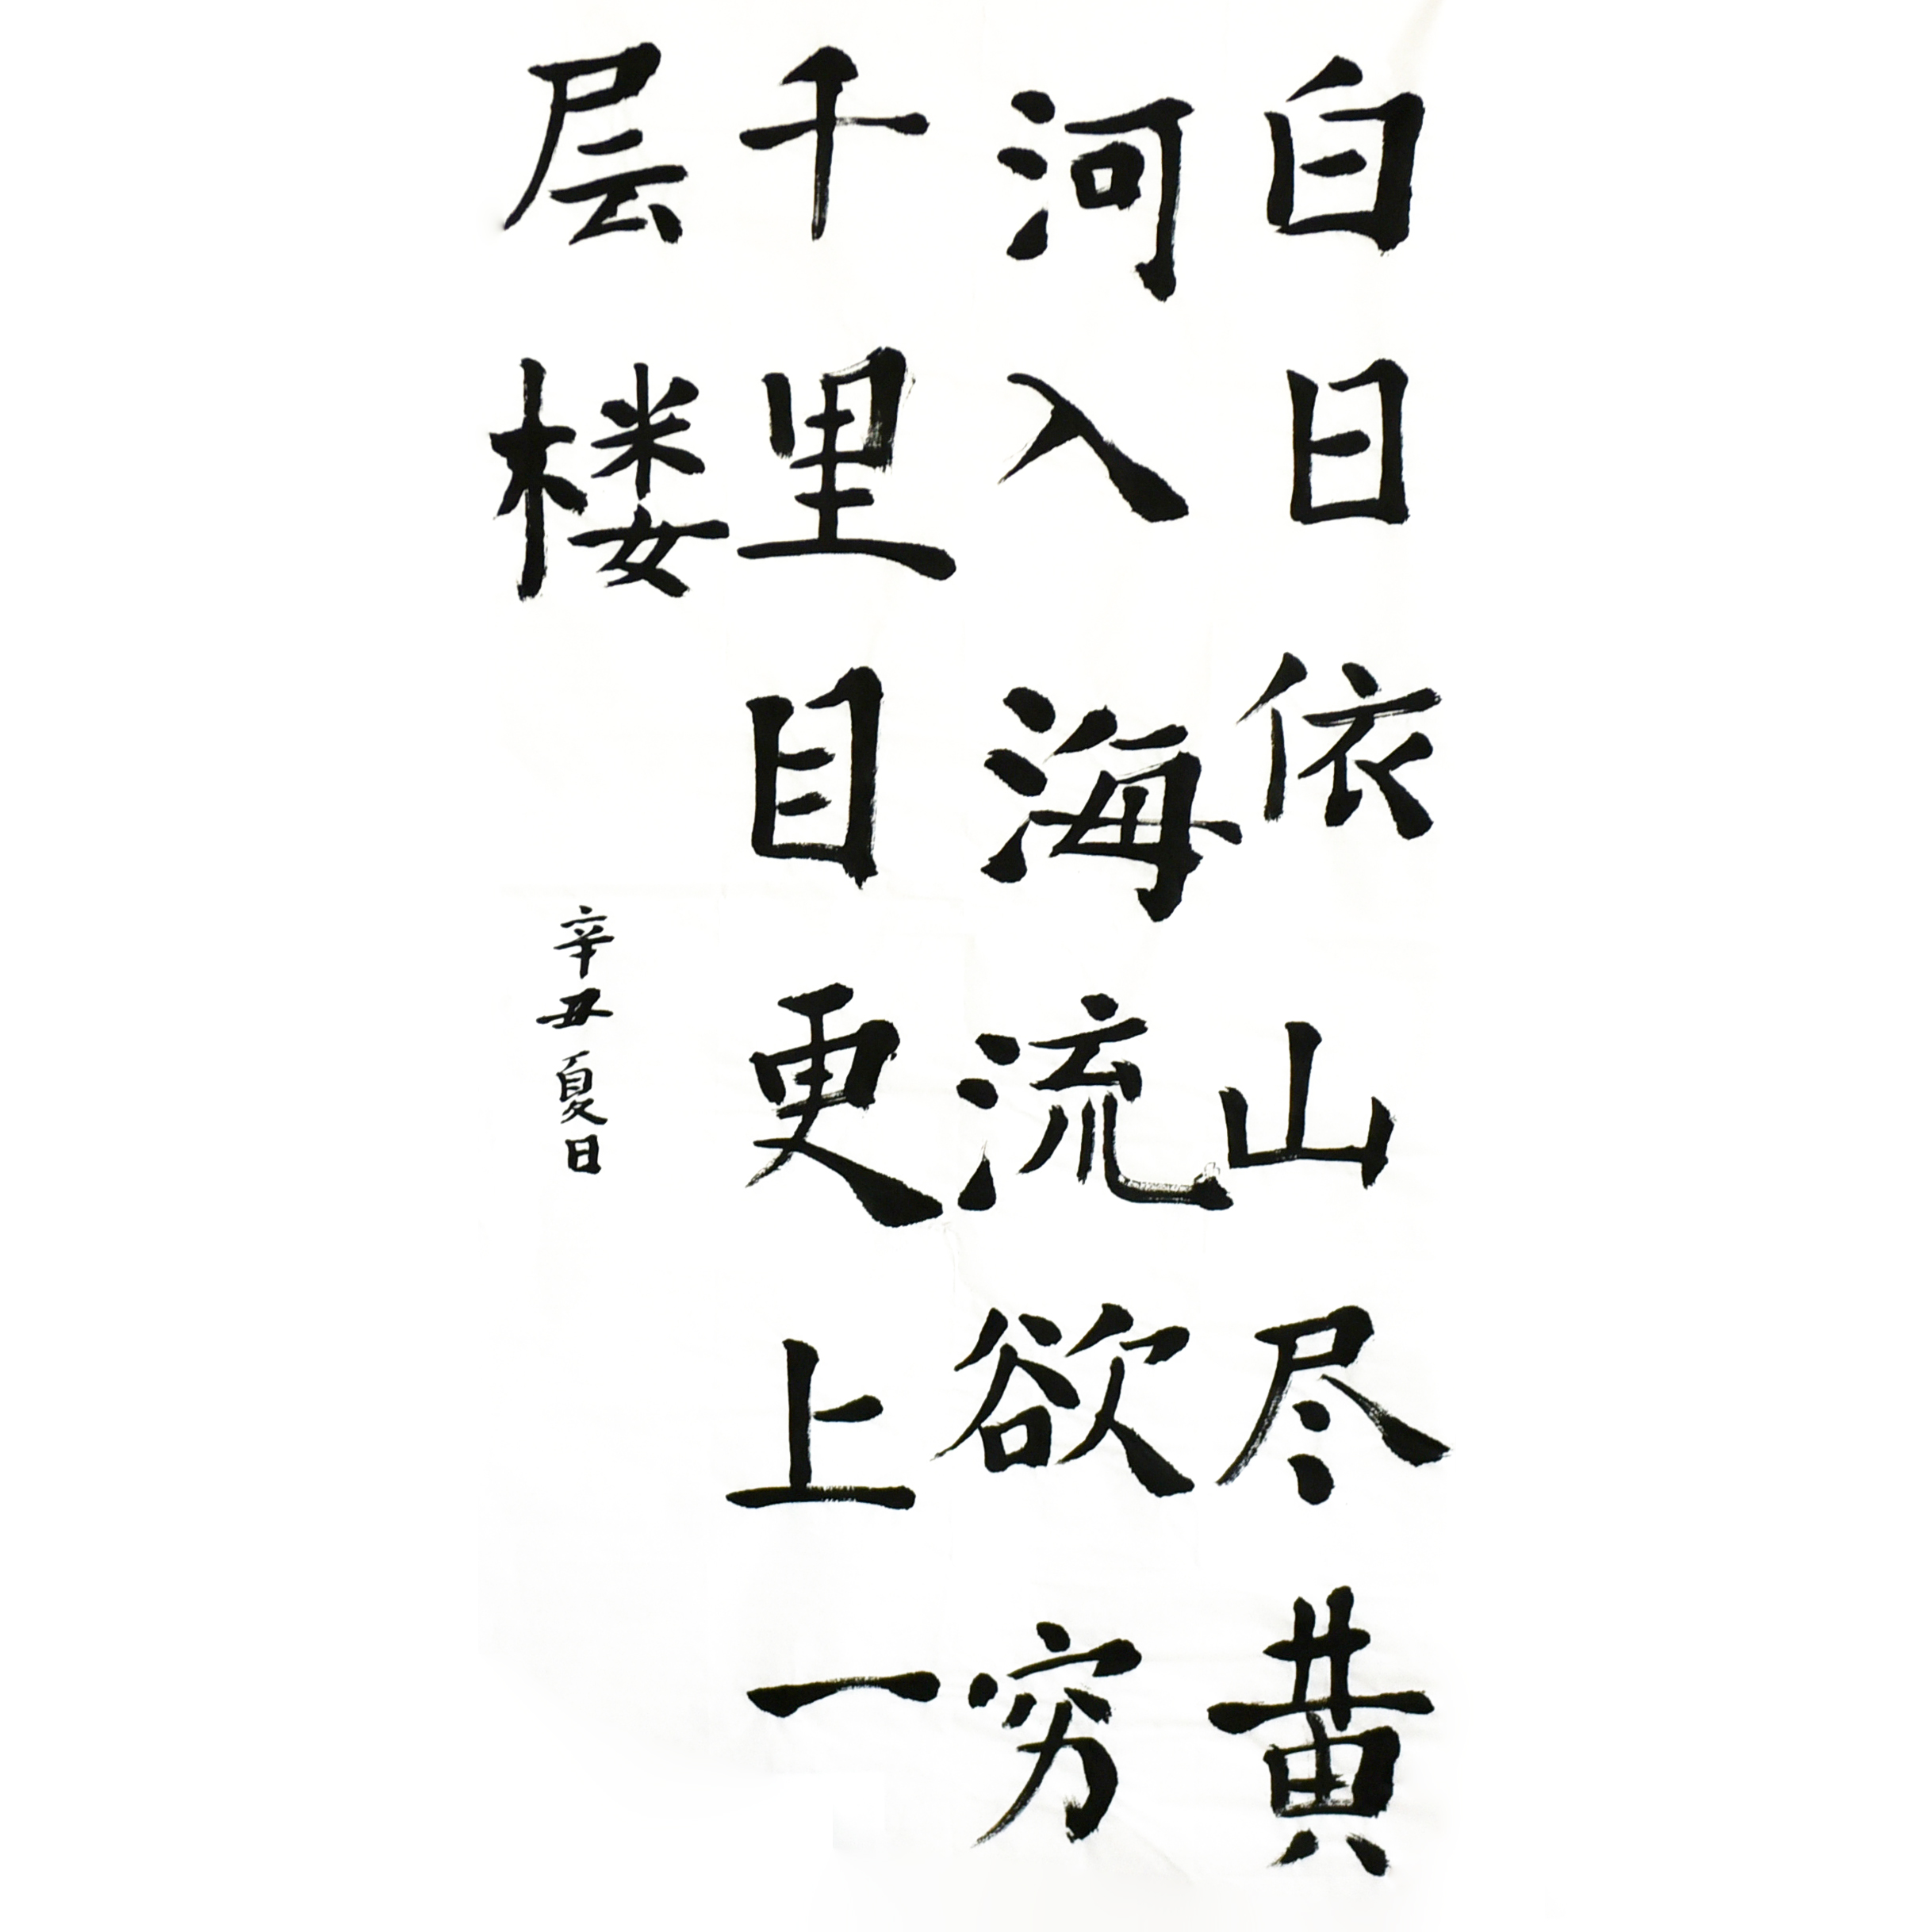 白日依山尽黄
河入海流欲穷
千里目更上一
层楼
辛丑夏日